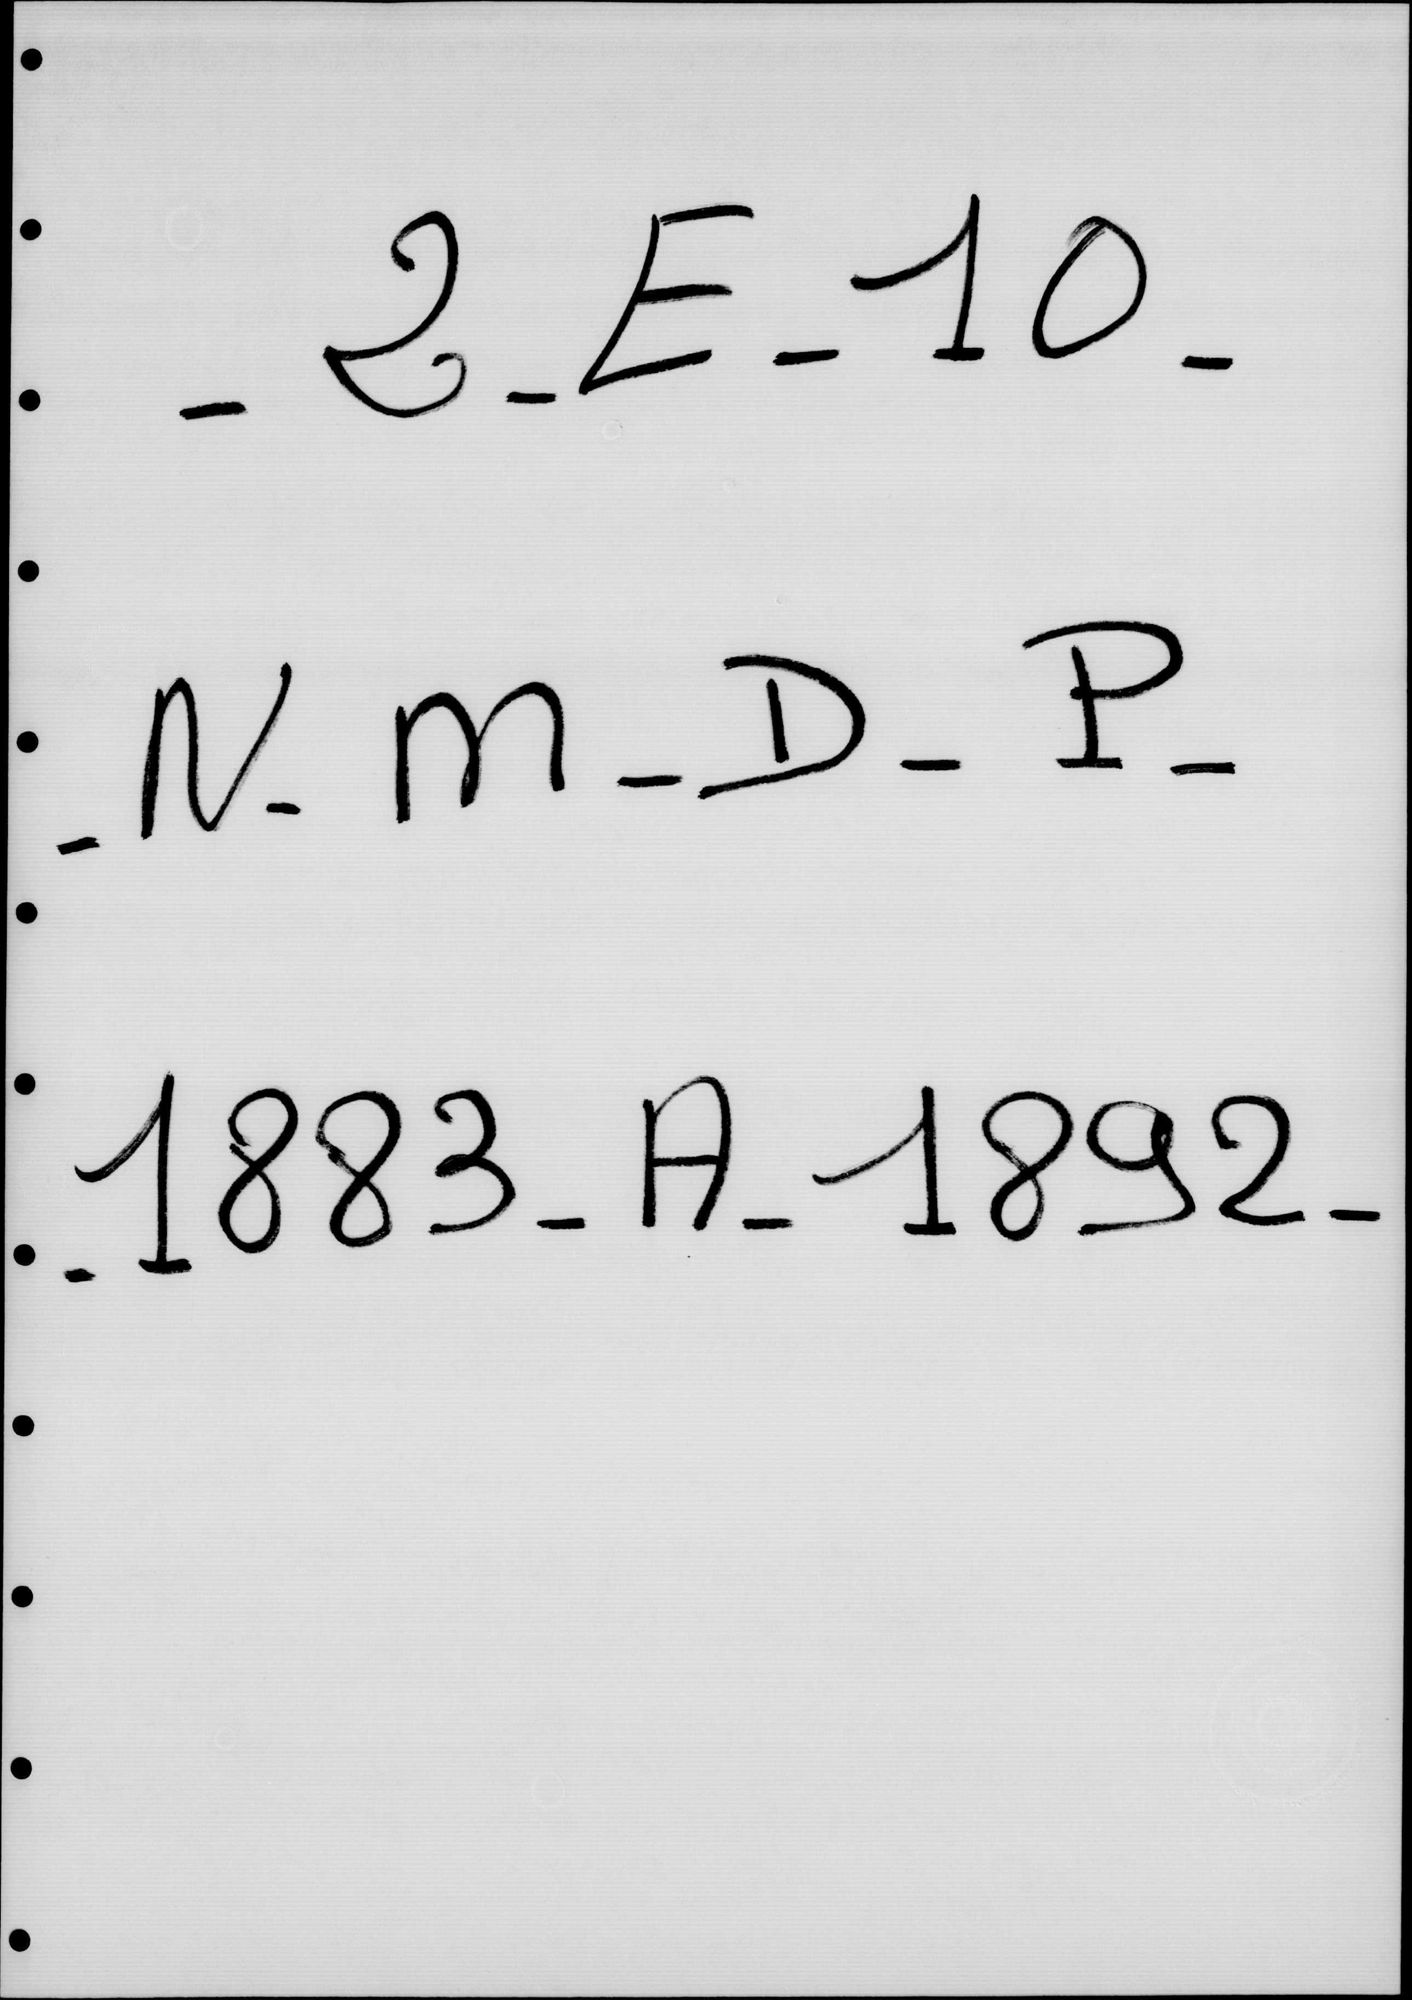 _ 2 _ E _ 10 _
_ N _ M _ D _ P _
_ 1883 _ A _ 1892 _